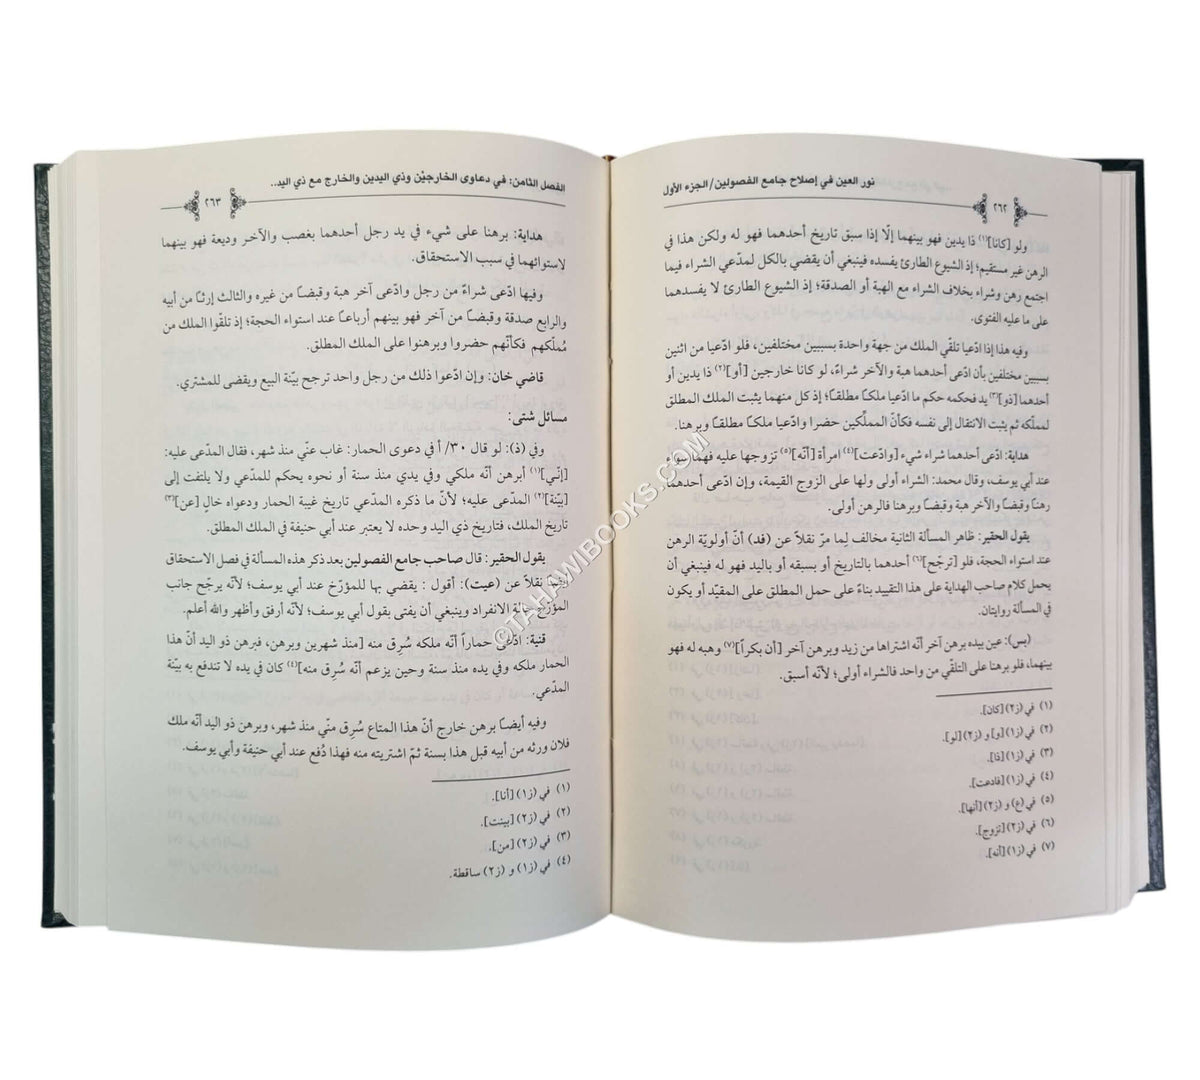 نور العين في إصلاح جامع الفصولين/الجزء الأول
٢٦٢
ولو [كانا](١) ذا يدين فهو بينهما إلّا إذا سبق تاريخ أحدهما فهو له ولكن هذا في
الرهن غير مستقيم؛ إذ الشيوع الطارئ يفسده فينبغي أن يقضي بالكل لمدّعي الشراء فيما
اجتمع رهن وشراء بخلاف الشراء مع الهبة أو الصدقة؛ إذ الشيوع الطارئ لا يفسدهما
على ما عليه الفتوى.
وفيه هذا إذا ادّعيا تلقّي الملك من جهة واحدة بسببين مختلفين، فلو ادّعيا من اثنين
بسببين مختلفين بأن ادّعى أحدهما هبة والآخر شراءً، لو كانا خارجين [أو](٢) ذا يدين أو
أحدهما [ذو](٣) يد فحكمه حكم ما ادّعيا ملكًا مطلقًا؛ إذ كل منهما يثبت الملك المطلق
لمملّكه ثم يثبت الانتقال إلى نفسه فكأنّ المملّكين حضرا وادّعيا ملكًا مطلقًا وبرهنا.
هداية: ادّعى أحدهما شراء شيء [وادّعت](٤) امرأة [أنّه](٥) تزوجها عليه فهما سواء
عند أبي يوسف، وقال محمد: الشراء أولى ولها على الزوج القيمة، وإن ادّعى أحدهما
رهنًا وقبضًا والآخر هبة وقبضًا وبرهنا فالرهن أولى.
يقول الحقير: ظاهر المسألة الثانية مخالف لِما مرّ نقلاً عن (فد) أنّ أولويّة الرهن
عند استواء الحجة، فلو [ترجّح](٦) أحدهما بالتاريخ أو بسبقه أو باليد فهو له فينبغي أن
يحمل كلام صاحب الهداية على هذا التقييد بناءً على حمل المطلق على المقيّد أو يكون
في المسألة روايتان.
(بس): عين بيده برهن آخر أنّه اشتراها من زيد وبرهن آخر [أن بكراً](٧) وهبه له فهو
بينهما، فلو برهنا على التلقي من واحد فالشراء أولى؛ لأنّه أسبق.
(١) في (ز٢) [كان].
(٢) في (ز١) [و] و (ز٢) [لو].
(٣) في (ز١) [ذا].
(٤) في (ز١) [فادعت].
(٥) في (ع) و (ز٢) [أنها].
(٦) في (ز٢) [تزوج].
(٧) في (ز١) [أنه].
الفصل الثامن: في دعاوى الخارجيْن وذي اليدين والخارج مع ذي اليد..
٢٦٣
هداية: برهنا على شيء في يد رجل أحدهما بغصب والآخر وديعة فهو بينهما
لاستوائهما في سبب الاستحقاق.
وفيها ادّعى شراءً من رجل وادّعى آخر هبة وقبضًا من غيره والثالث إرثًا من أبيه
والرابع صدقة وقبضًا من آخر فهو بينهم أرباعًا عند استواء الحجة؛ إذ تلقّوا الملك من
مُملّكهم فكأنّهم حضروا وبرهنوا على الملك المطلق.
قاضي خان: وإن ادّعوا ذلك من رجل واحد ترجح بيّنة البيع ويقضى للمشتري.
مسائل شتى:
وفي (ذ): لو قال ٣٠/ أ في دعوى الحمار: غاب عنّي منذ شهر، فقال المدّعى عليه:
[إنّي](١) أبرهن أنّه ملكي وفي يدي منذ سنة أو نحوه يحكم للمدّعي ولا يلتفت إلى
[بيّنة](٢) المدّعى عليه؛ لأنّ ما ذكره المدّعي تاريخ غيبة الحمار ودعواه خالٍ [عن](٣)
تاريخ الملك، فتاريخ ذي اليد وحده لا يعتبر عند أبي حنيفة في الملك المطلق.
يقول الحقير: قال صاحب جامع الفصولين بعد ذكر هذه المسألة في فصل الاستحقاق
أيضًا نقلاً عن (عيت): أقول : يقضي بها للمؤرّخ عند أبي يوسف؛ لأنّه يرجّح جانب
المؤرّخ حالة الانفراد وينبغي أن يفتى بقول أبي يوسف؛ لأنّه أرفق وأظهر والله أعلم.
قنية: ادّعى حماراً أنّه ملكه سُرِق منه [منذ شهرين وبرهن، فبرهن ذو اليد أنّ هذا
الحمار ملكه وفي يده منذ سنة وحين يزعم أنّه سُرِق منه](٤) كان في يده لا تندفع به بيّنة
المدّعي.
وفيه أيضًا برهن خارج أنّ هذا المتاع سُرِق منّي منذ شهر، وبرهن ذو اليد أنّه ملك
فلان ورثه من أبيه قبل هذا بسنة ثمّ اشتريته منه فهذا دُفع عند أبي حنيفة وأبي يوسف.
(١) في (ز١) [أنا].
(٢) في (ز٢) [بينت].
(٣) في (ز٢) [من].
(٤) في (ز١) و (ز٢) ساقطة.
©TAHAWIBOOKS.COM